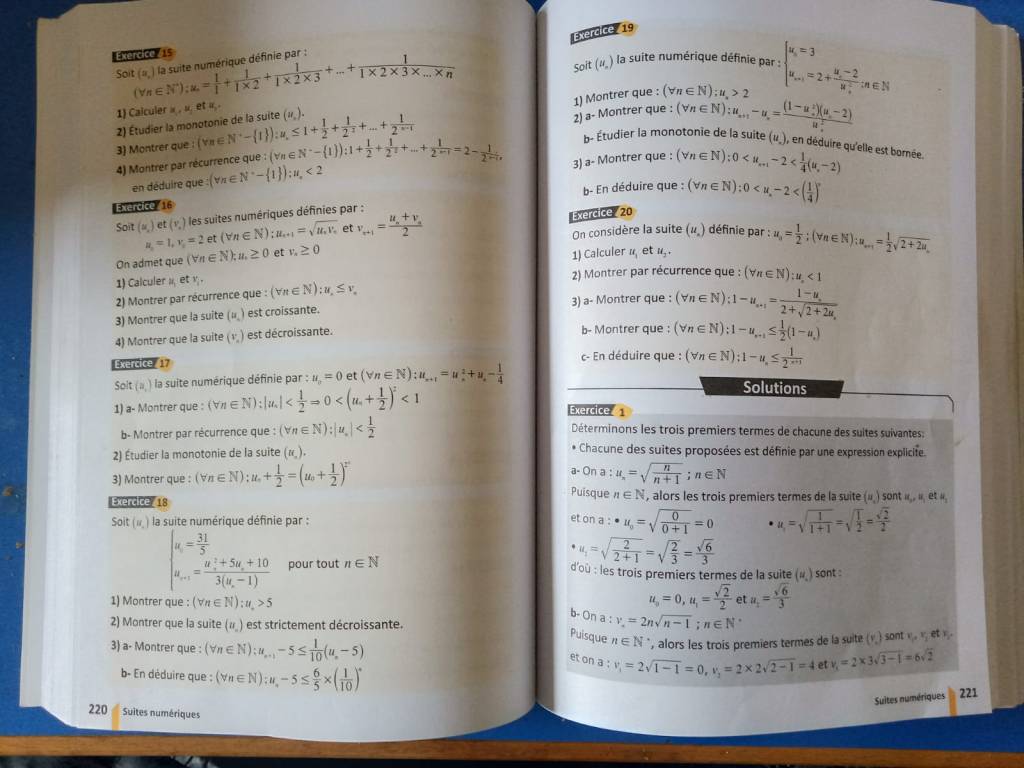 Exercice 15
Soit (uₙ) la suite numérique définie par :
(∀n ∈ ℕ*) ; uₙ = 1/1 + 1/(1×2) + 1/(1×2×3) + ... + 1/(1×2×3×...×n)
1) Calculer u₁, u₂ et u₃.
2) Étudier la monotonie de la suite (uₙ).
3) Montrer que : (∀n ∈ ℕ*-{1}) ; uₙ ≤ 1 + 1/2 + 1/2² + ... + 1/2ⁿ⁻¹
4) Montrer par récurrence que : (∀n ∈ ℕ*-{1}) ; 1 + 1/2 + 1/2² + ... + 1/2ⁿ⁻¹ = 2 - 1/2ⁿ⁻¹,
en déduire que : (∀n ∈ ℕ*-{1}) ; uₙ < 2
Exercice 16
Soit (uₙ) et (vₙ) les suites numériques définies par :
u₀ = 1, v₀ = 2 et (∀n ∈ ℕ) ; uₙ₊₁ = √(uₙvₙ) et vₙ₊₁ = (uₙ + vₙ)/2
On admet que (∀n ∈ ℕ) ; uₙ ≥ 0 et vₙ ≥ 0
1) Calculer u₁ et v₁.
2) Montrer par récurrence que : (∀n ∈ ℕ) ; uₙ ≤ vₙ
3) Montrer que la suite (uₙ) est croissante.
4) Montrer que la suite (vₙ) est décroissante.
Exercice 17
Soit (uₙ) la suite numérique définie par : u₀ = 0 et (∀n ∈ ℕ) ; uₙ₊₁ = uₙ² + uₙ - 1/4
1) a- Montrer que : (∀n ∈ ℕ) ; |uₙ| < 1/2 ⇒ 0 < (uₙ + 1/2)² < 1
b- Montrer par récurrence que : (∀n ∈ ℕ) ; |uₙ| < 1/2
2) Étudier la monotonie de la suite (uₙ).
3) Montrer que : (∀n ∈ ℕ) ; uₙ + 1/2 = (u₀ + 1/2)^(2ⁿ)
Exercice 18
Soit (uₙ) la suite numérique définie par :
{ u₀ = 31/5
uₙ₊₁ = (uₙ² + 5uₙ + 10)/(3(uₙ - 1)) pour tout n ∈ ℕ
1) Montrer que : (∀n ∈ ℕ) ; uₙ > 5
2) Montrer que la suite (uₙ) est strictement décroissante.
3) a- Montrer que : (∀n ∈ ℕ) ; uₙ₊₁ - 5 ≤ 1/10 (uₙ - 5)
b- En déduire que : (∀n ∈ ℕ) ; uₙ - 5 ≤ 6/5 × (1/10)ⁿ
220 Suites numériques
Exercice 19
Soit (uₙ) la suite numérique définie par : { u₀ = 3
uₙ₊₁ = 2 + (uₙ - 2)/uₙ² ; n ∈ ℕ
1) Montrer que : (∀n ∈ ℕ) ; uₙ > 2
2) a- Montrer que : (∀n ∈ ℕ) ; uₙ₊₁ - uₙ = (1 - uₙ²)(uₙ - 2)/uₙ²
b- Étudier la monotonie de la suite (uₙ), en déduire qu'elle est bornée.
3) a- Montrer que : (∀n ∈ ℕ) ; 0 < uₙ₊₁ - 2 < 1/4 (uₙ - 2)
b- En déduire que : (∀n ∈ ℕ) ; 0 < uₙ - 2 < (1/4)ⁿ
Exercice 20
On considère la suite (uₙ) définie par : u₀ = 1/2 ; (∀n ∈ ℕ) ; uₙ₊₁ = 1/2 √(2 + 2uₙ)
1) Calculer u₁ et u₂.
2) Montrer par récurrence que : (∀n ∈ ℕ) ; uₙ < 1
3) a- Montrer que : (∀n ∈ ℕ) ; 1 - uₙ₊₁ = (1 - uₙ)/(2 + √(2 + 2uₙ))
b- Montrer que : (∀n ∈ ℕ) ; 1 - uₙ₊₁ ≤ 1/2 (1 - uₙ)
c- En déduire que : (∀n ∈ ℕ) ; 1 - uₙ ≤ 1/2ⁿ⁺¹
Solutions
Exercice 1
Déterminons les trois premiers termes de chacune des suites suivantes:
• Chacune des suites proposées est définie par une expression explicite.
a- On a : uₙ = √(n/(n+1)) ; n ∈ ℕ
Puisque n ∈ ℕ, alors les trois premiers termes de la suite (uₙ) sont u₀, u₁ et u₂
et on a : • u₀ = √(0/(0+1)) = 0 • u₁ = √(1/(1+1)) = √(1/2) = √2/2
• u₂ = √(2/(2+1)) = √(2/3) = √6/3
d'où : les trois premiers termes de la suite (uₙ) sont :
u₀ = 0, u₁ = √2/2 et u₂ = √6/3
b- On a : vₙ = 2n√(n-1) ; n ∈ ℕ*
Puisque n ∈ ℕ*, alors les trois premiers termes de la suite (vₙ) sont v₁, v₂ et v₃.
et on a : v₁ = 2√(1-1) = 0, v₂ = 2×2√(2-1) = 4 et v₃ = 2×3√(3-1) = 6√2
Suites numériques 221